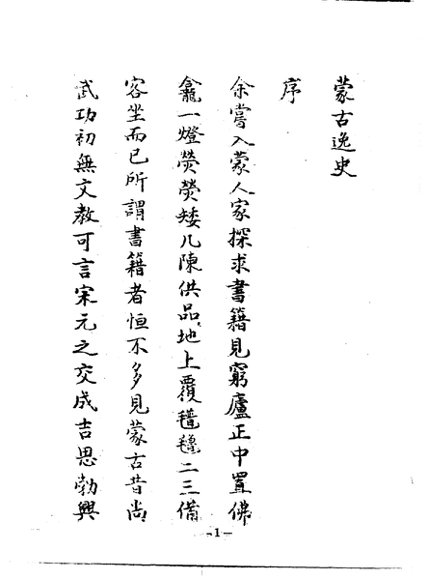 蒙古逸史
序
余嘗入蒙人家探求書籍見窮廬正中置佛
龕一燈熒熒矮几陳供品地上覆氊毯二三備
客坐而已所謂書籍者恒不多見蒙古昔尚
武功初無文教可言宋元之交成吉思勃興
-1-